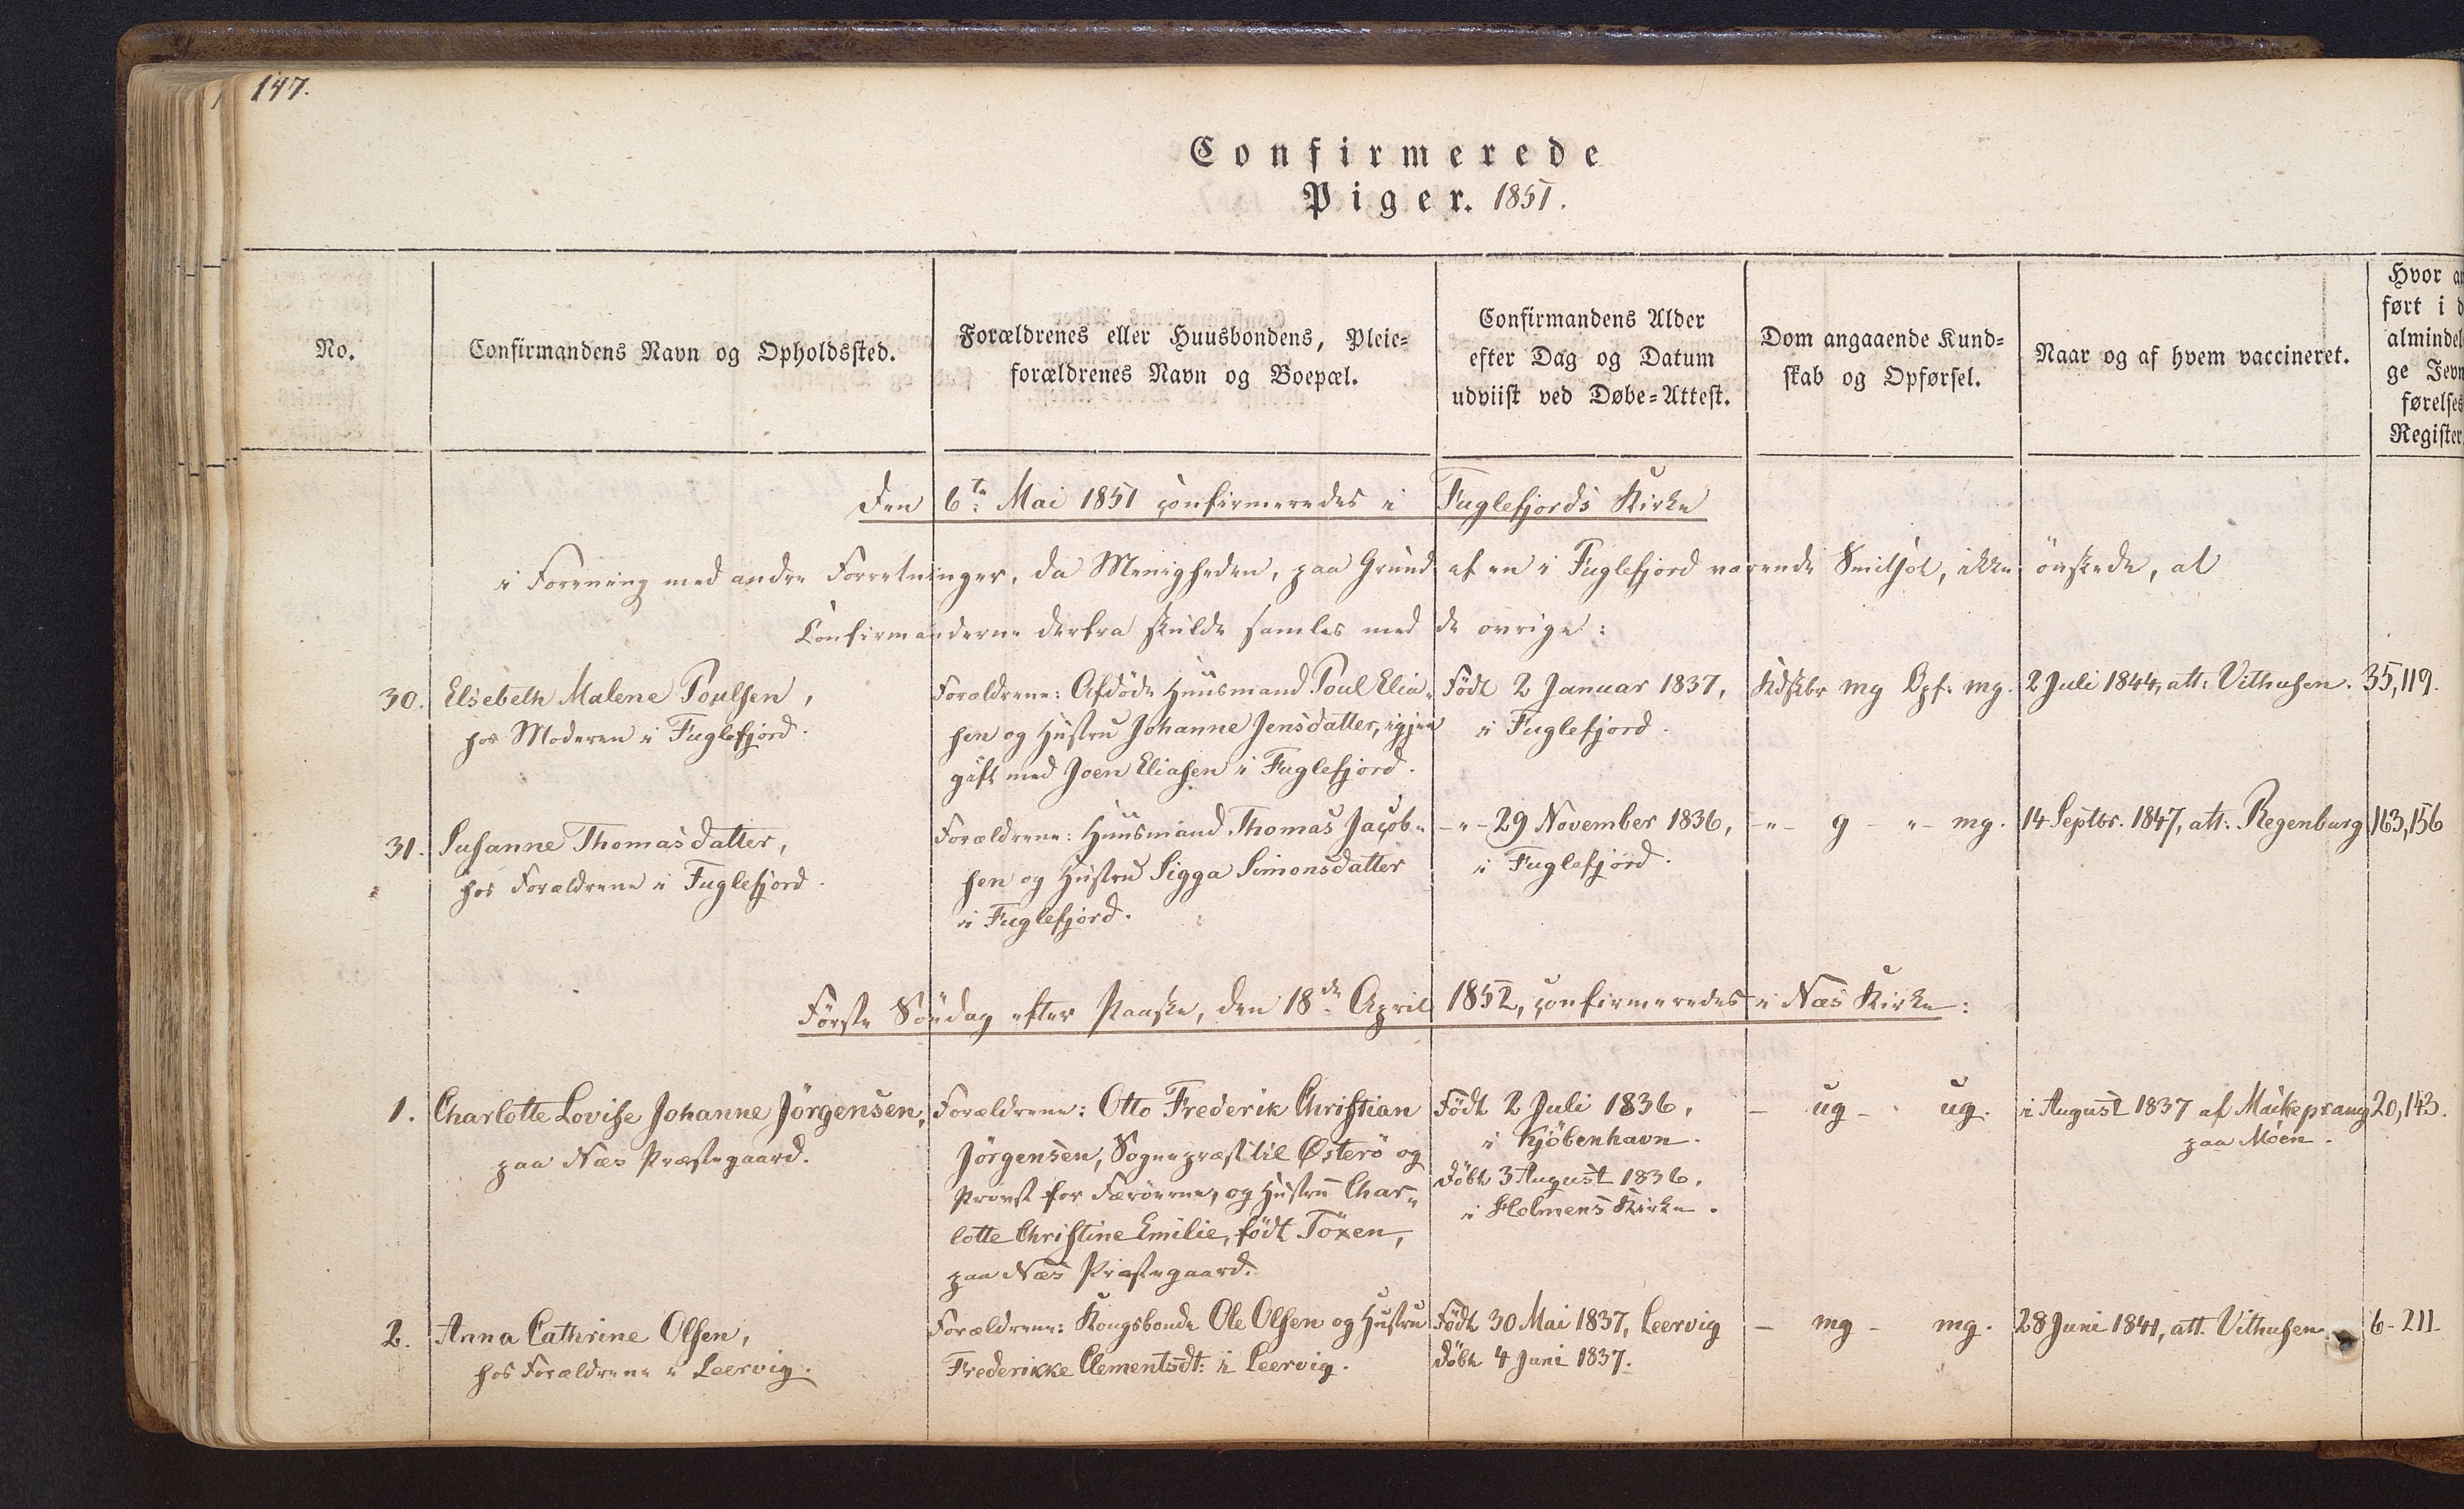 147.
Confirmerede
Piger. 1851.
No.
Confirmandens Navn og Opholdssted.
Forældrenes eller Huusbondens, Pleie-
forældrenes Navn og Boepæl.
Confirmandens Alder
efter Dag og Datum
udviist ved Døbe-Attest.
Dom angaaende Kund-
skab og Opførsel.
Naar og af hvem vaccineret.
Hvor
ført i
almindel
ge Jevn
førelses
Register
Den 6te Mai 1851 confirmeredes i Fuglefjords Kirke
i Forening med andre Forretninger, da Menigheden, paa Grund af en i Fuglefjord værende Smitsot, ikke önskede, at
Confirmanderne derfra skulde samles med de øvrige:
30. Elsebeth Malene Poulsen,
hos Moderen i Fuglefjord.
Forældrene: Afdöde Huusmand Poul Elia-
sen og Hustru Johanne Jensdatter, igjen
gift med Joen Eliasen i Fuglefjord.
Födt 2 Januar 1837,
i Fuglefjord.
Kdskbr mg Opf: mg.
2 Juli 1844, att: Vithusen.
35,119.
31. Susanne Thomasdatter,
hos Forældrene i Fuglefjord.
Forældrene: Huusmand Thomas Jacob-
sen og Hustru Sigga Simonsdatter
i Fuglefjord.
-"- 29 November 1836,
i Fuglefjord.
-"- g -"- mg.
14 Septbr. 1847, att: Regenburg
163,156
Første Söndag efter Paaske, den 18de April 1852, confirmeredes i Næs Kirke:
1. Charlotte Lovise Johanne Jörgensen,
paa Næs Præstegaard.
Forældrene: Otto Frederik Christian
Jörgensen, Sognepræst til Østerö og
Provst for Færöerne, og Hustru Char-
lotte Christine Emilie, födt Töxen,
paa Næs Præstegaard.
Födt 2 Juli 1836,
i Kjöbenhavn.
döbt 3 August 1836.
i Holmens Kirke.
- ug - ug.
i August 1837 af Mackeprang
paa Möen.
20,143.
2. Anna Cathrine Olsen,
hos Forældrene i Leervig.
Forældrene: Kongsbonde Ole Olsen og Hustru
Frederikke Clementsdt: i Leervig.
Födt 30 Mai 1837, Leervig
döbt 4 Juni 1837.
- mg - mg.
28 Juni 1841, att. Vithusen.
6-211